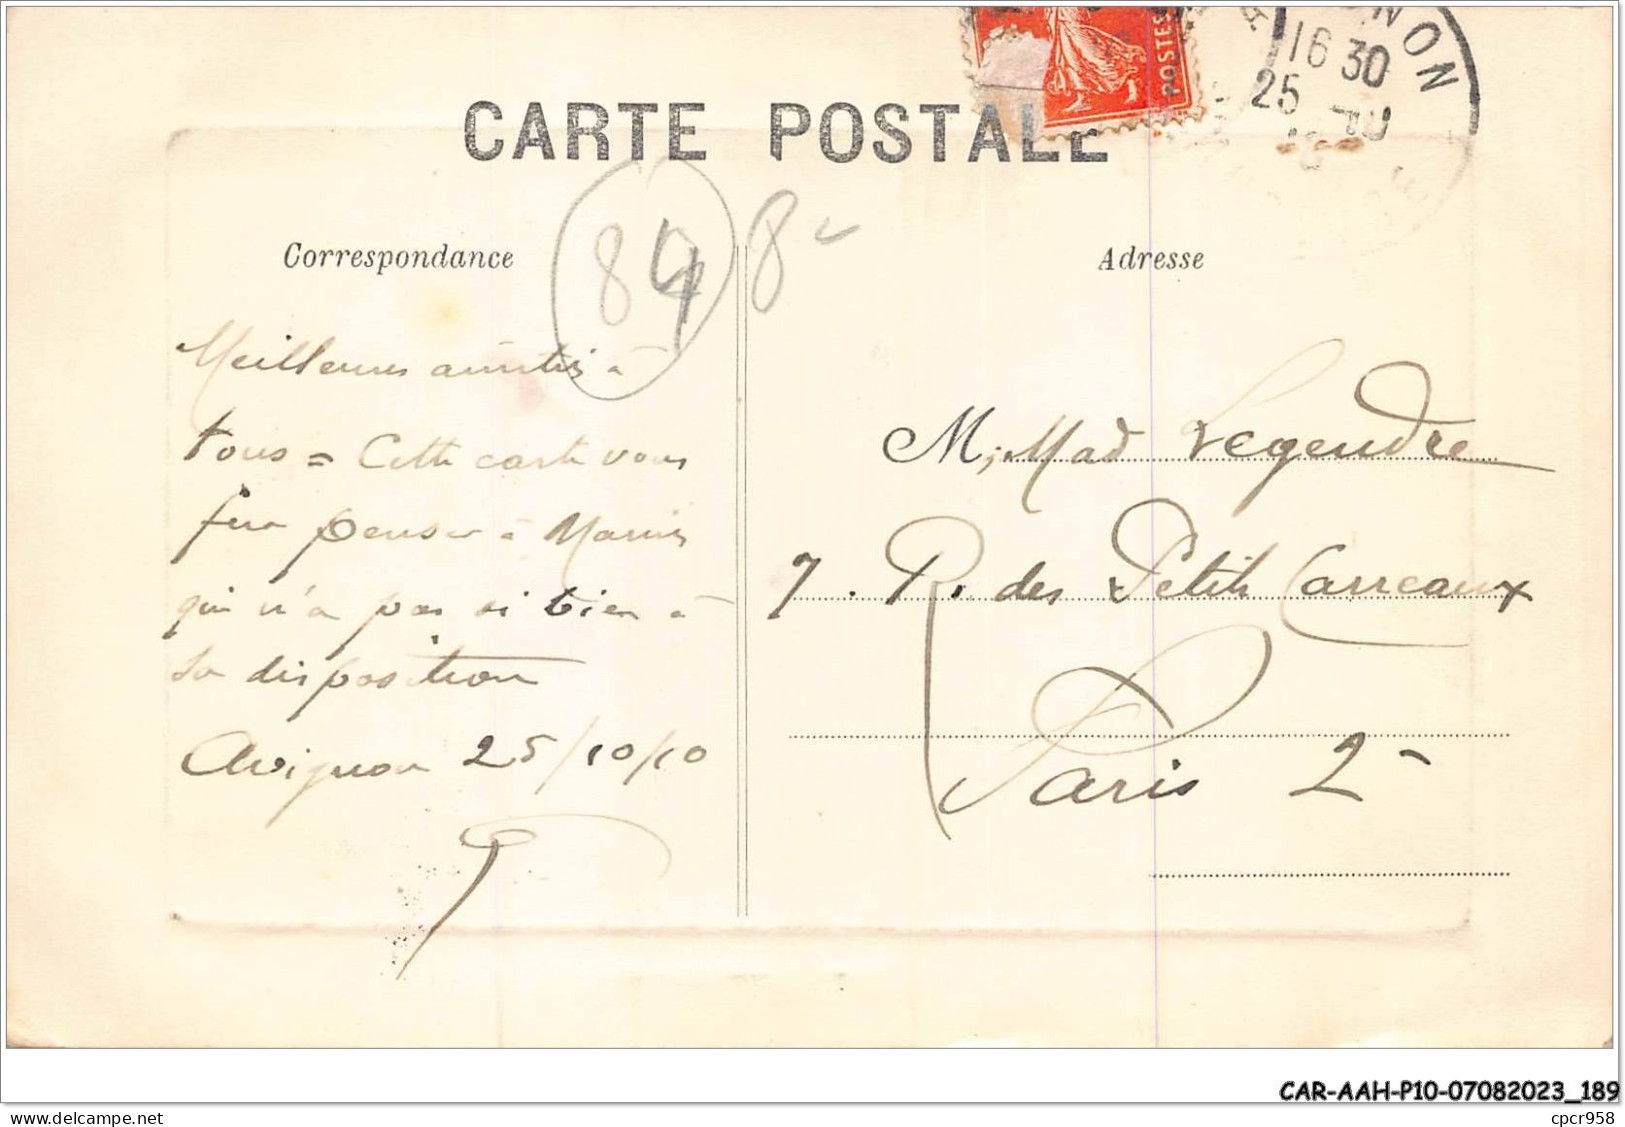 POSTES
NON
16 30
25 -10
CARTE POSTALE
84 8-
Correspondance
Adresse
Meilleures amitiés à
tous = Cette carte vous
fera penser à Marius
qui n'a pas si bien à
sa disposition
Avignon 25/10/10
M, Mad Legendre
7. R. des Petits Carreaux
Paris 2-
CAR-AAH-P10-07082023_189
cpcr958